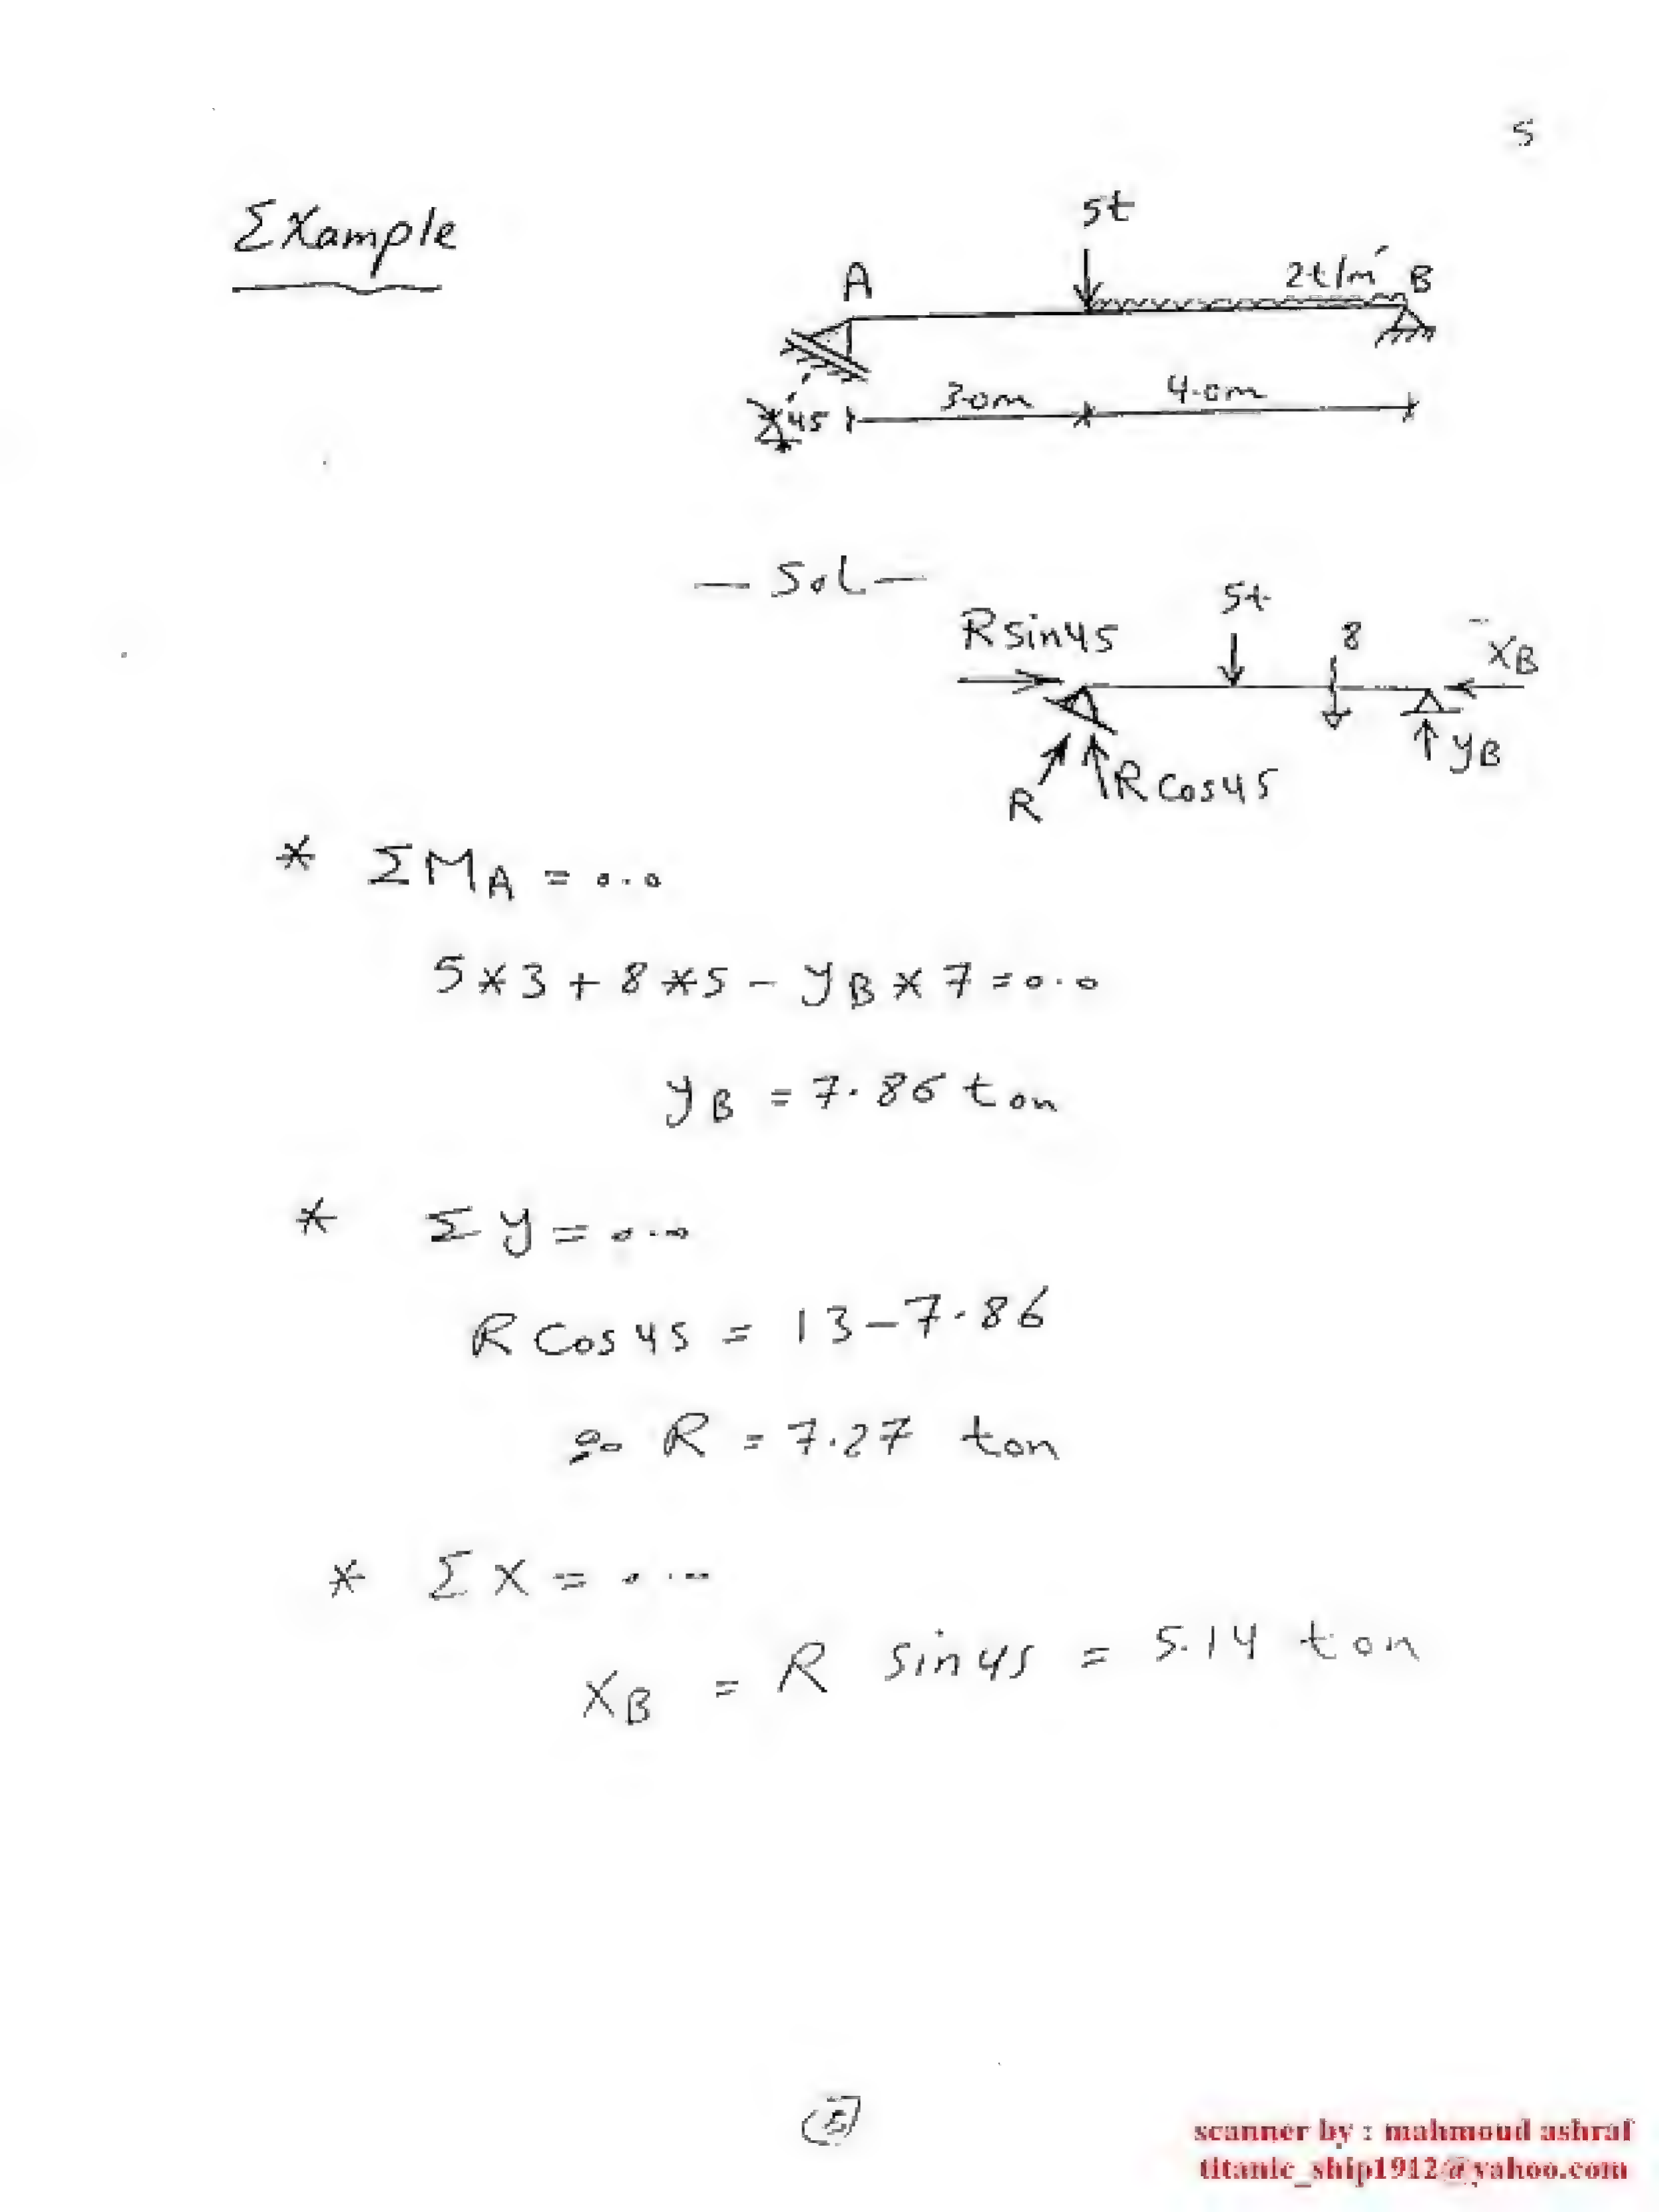 5
Example
5t
A
2t/m' B
45
3.0m
4.0m
— Sol —
5t
R sin45
8
XB
yB
R
R Cos45
* ΣMA = 0.0
5*3 + 8*5 - yB * 7 = 0.0
yB = 7.86 ton
* Σy = 0.0
R Cos 45 = 13 - 7.86
∴ R = 7.27 ton
* ΣX = 0.0
XB = R sin45 = 5.14 ton
5
scanner by : mahmoud ashraf
titanic_ship1912@yahoo.com